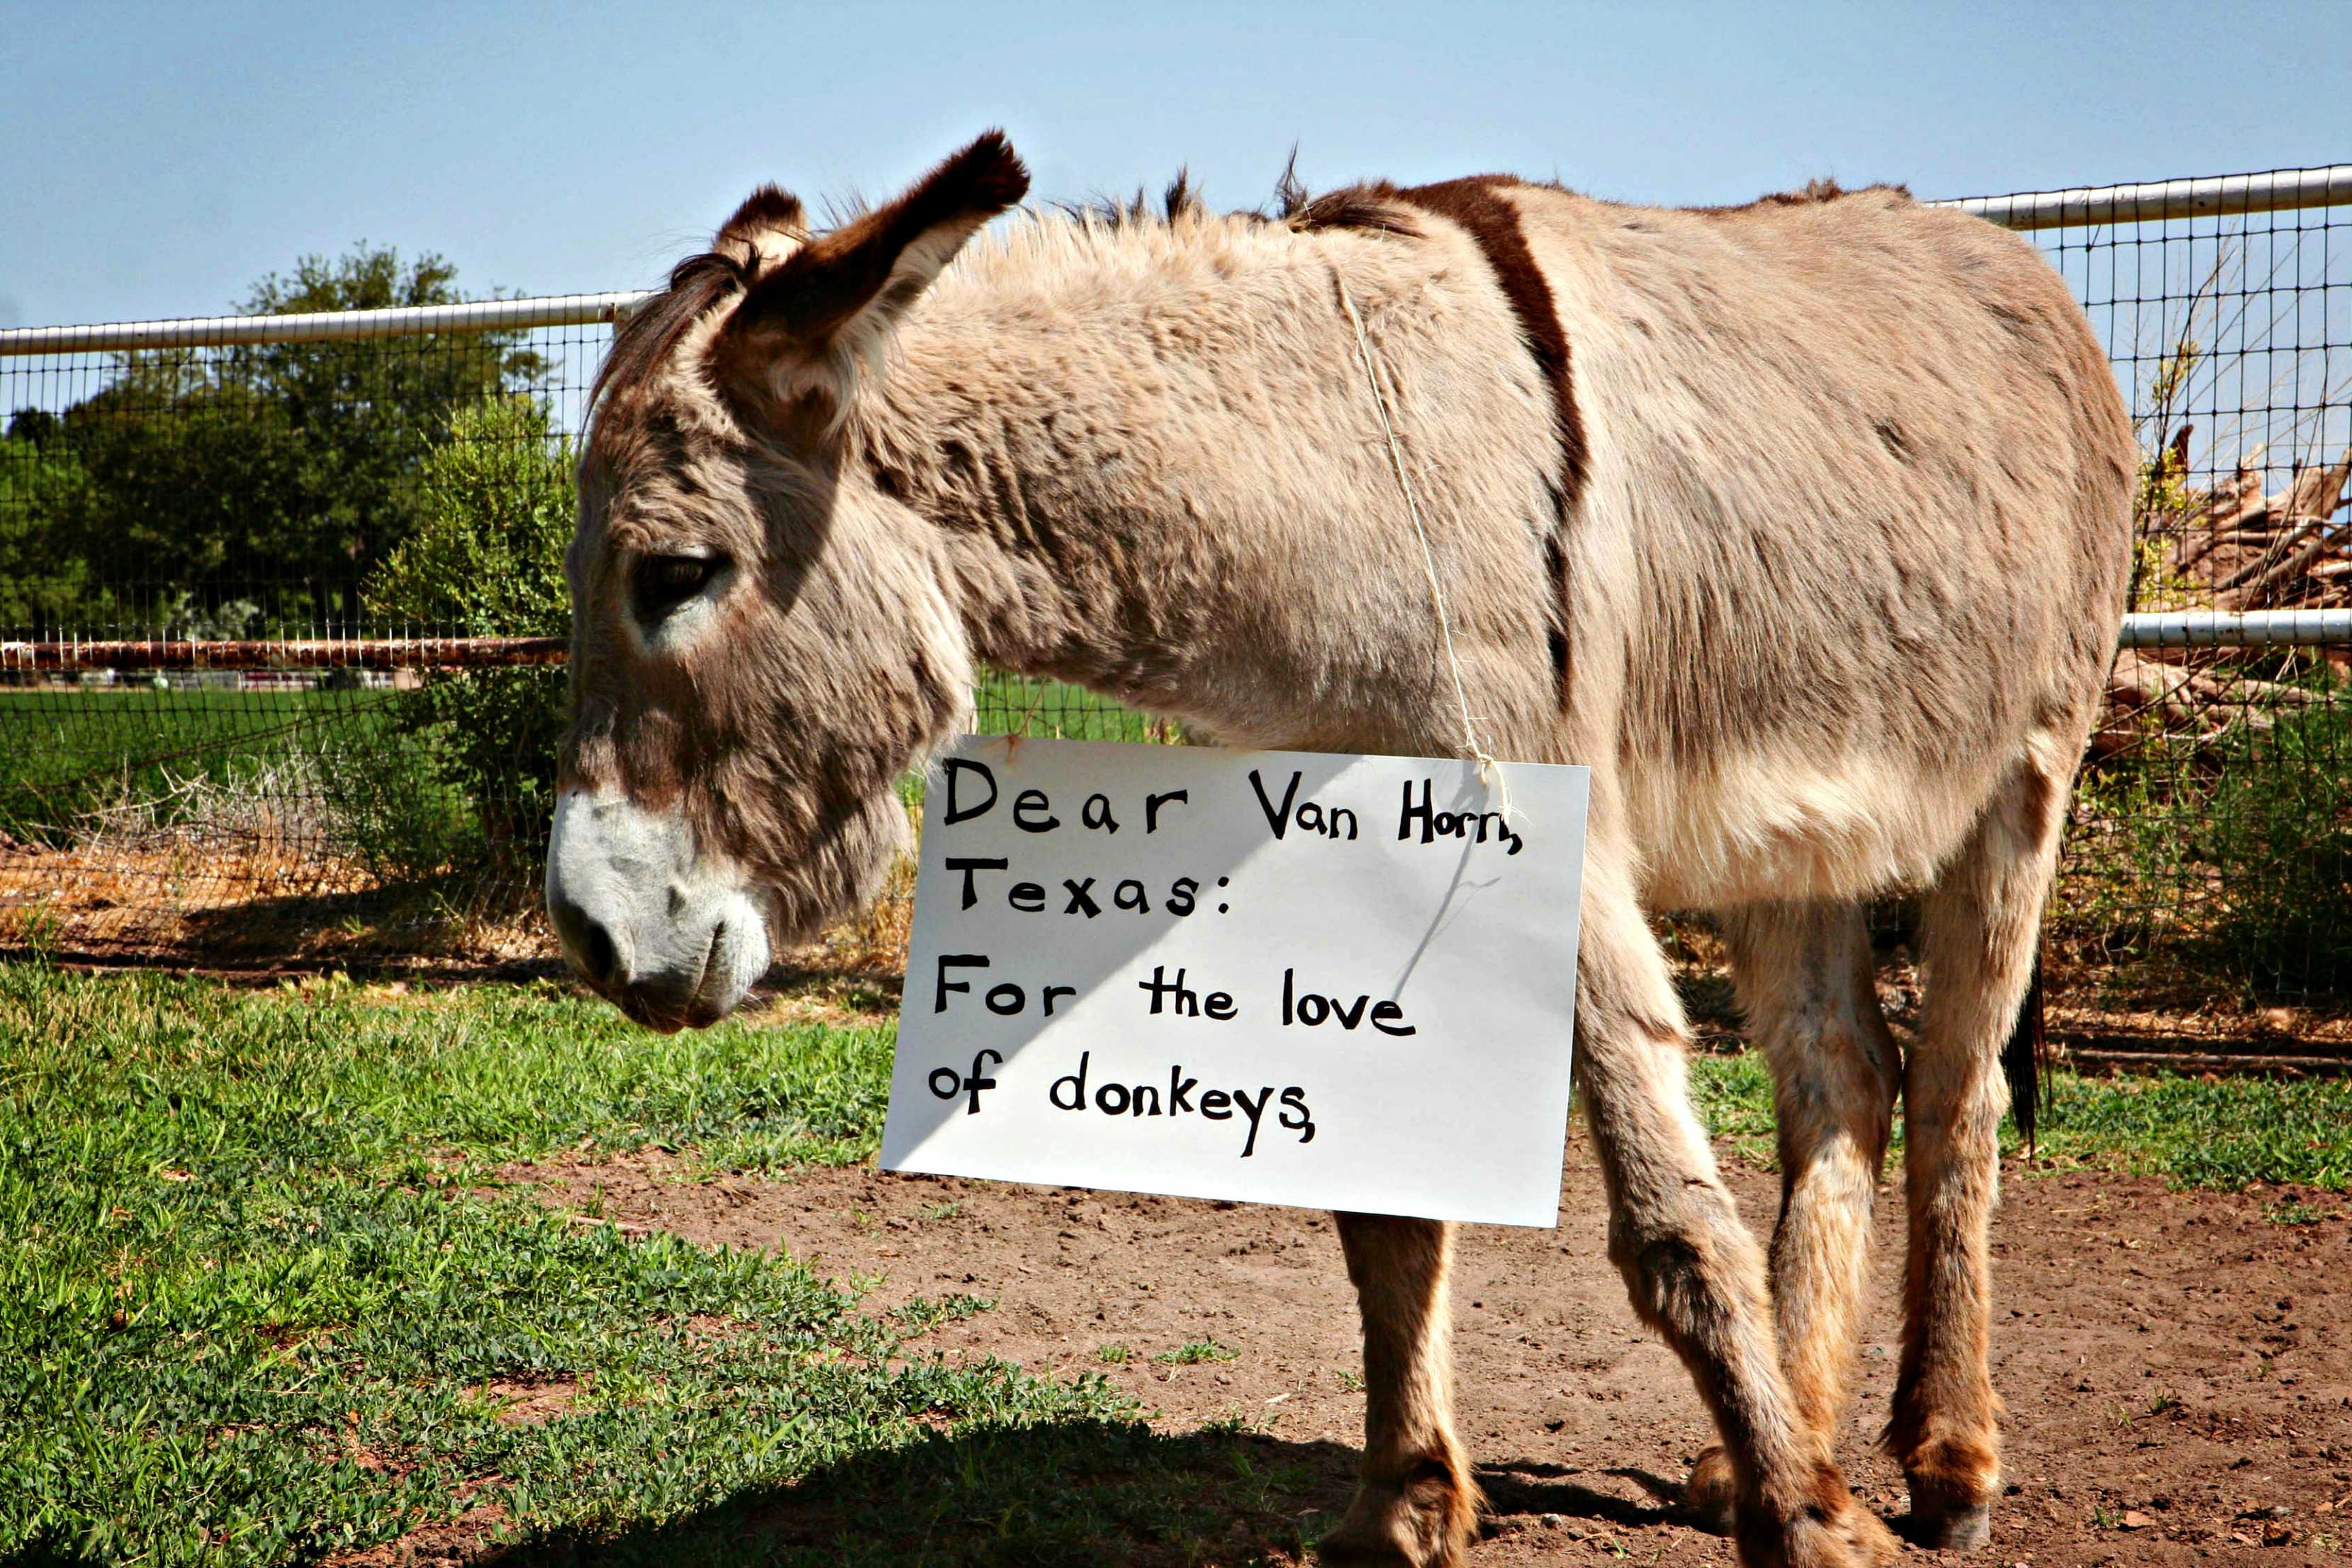 Dear Van Horn,
Texas:
For the love
of donkeys,